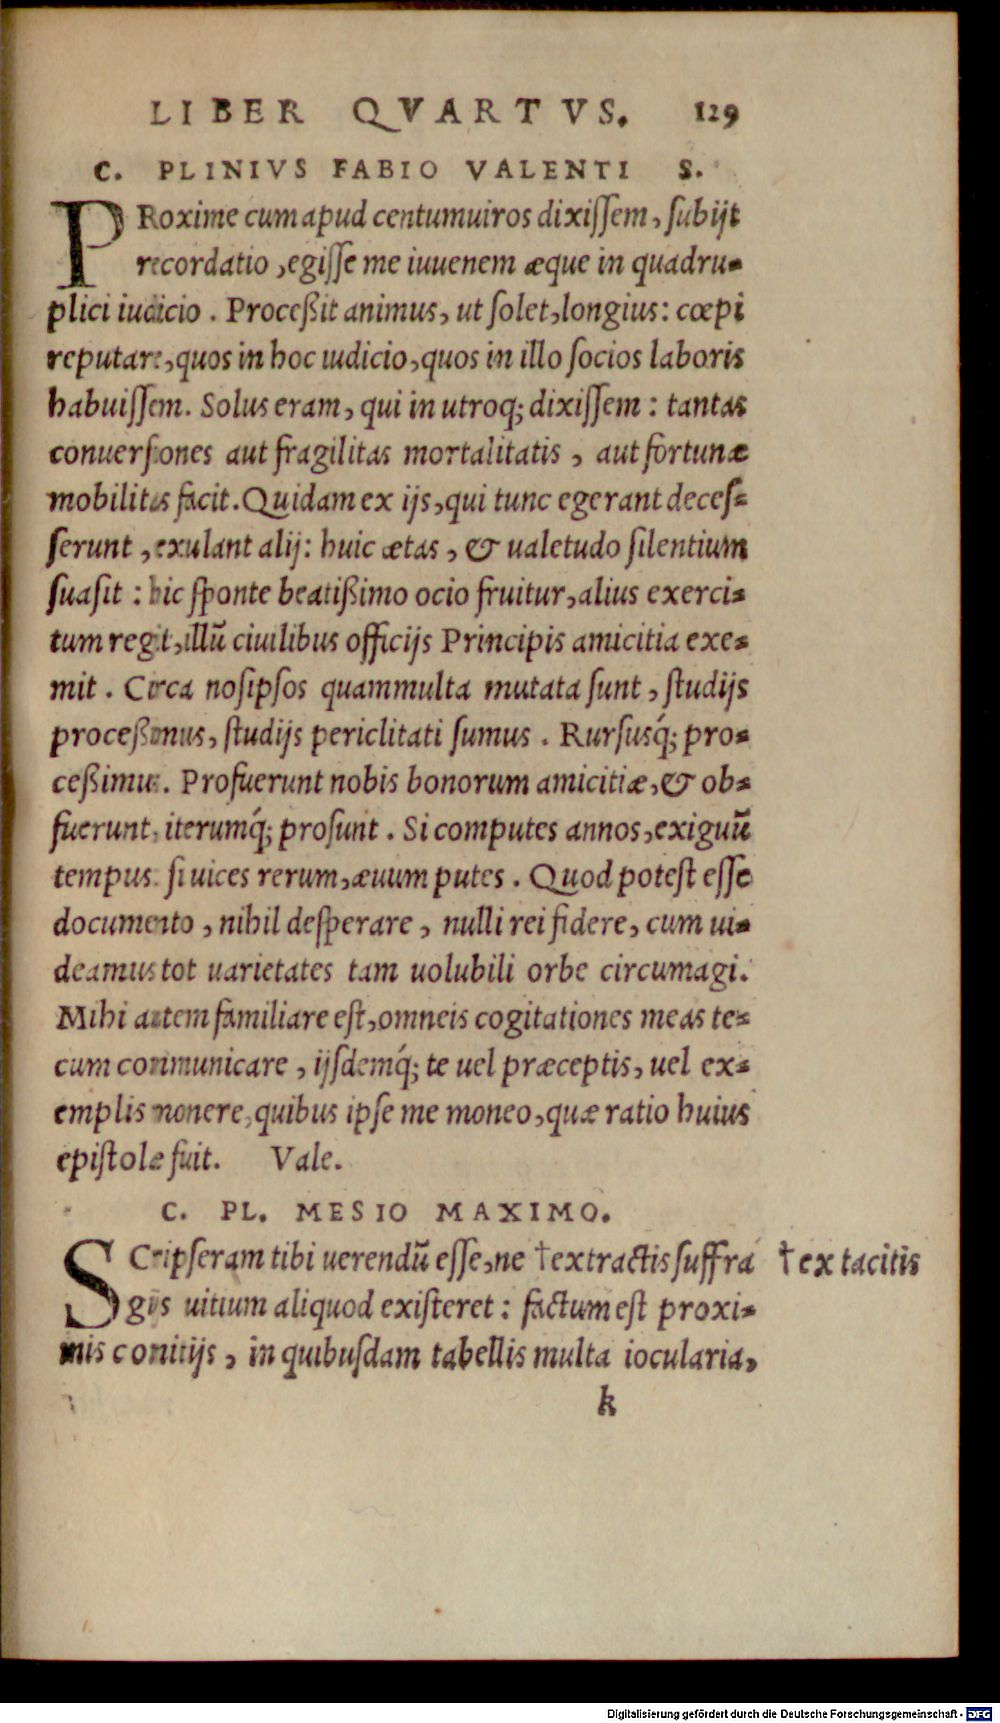 LIBER QVARTVS. 129
C. PLINIVS FABIO VALENTI S.
PRoxime cum apud centumuiros dixissem, subijt
recordatio, egisse me iuuenem æque in quadru-
plici iudicio. Proceßit animus, ut solet, longius: cœpi
reputare, quos in hoc iudicio, quos in illo socios laboris
habuissem. Solus eram, qui in utroq; dixissem: tantas
conuersiones aut fragilitas mortalitatis, aut fortunæ
mobilitas facit. Quidam ex ijs, qui tunc egerant deces-
serunt, exulant alij: huic ætas, & ualetudo silentium
suasit: hic sponte beatißimo ocio fruitur, alius exerci-
tum regit, illũ ciuilibus officijs Principis amicitia exe-
mit. Circa nosipsos quammulta mutata sunt, studijs
proceßimus, studijs periclitati sumus. Rursusq́; pro-
ceßimus. Profuerunt nobis bonorum amicitiæ, & ob-
fuerunt, iterumq́; prosunt. Si computes annos, exiguũ
tempus, si uices rerum, æuum putes. Quod potest esse
documento, nihil desperare, nulli rei fidere, cum ui-
deamus tot uarietates tam uolubili orbe circumagi.
Mihi autem familiare est, omneis cogitationes meas te-
cum communicare, ijsdemq́; te uel præceptis, uel ex-
emplis monere, quibus ipse me moneo, quæ ratio huius
epistolæ fuit. Vale.
C. PL. MESIO MAXIMO.
SCripseram tibi uerendũ esse, ne †extractis suffra †ex tacitis
giis uitium aliquod existeret: factum est proxi-
mis comitijs, in quibusdam tabellis multa iocularia,
k
Digitalisierung gefördert durch die Deutsche Forschungsgemeinschaft - DFG